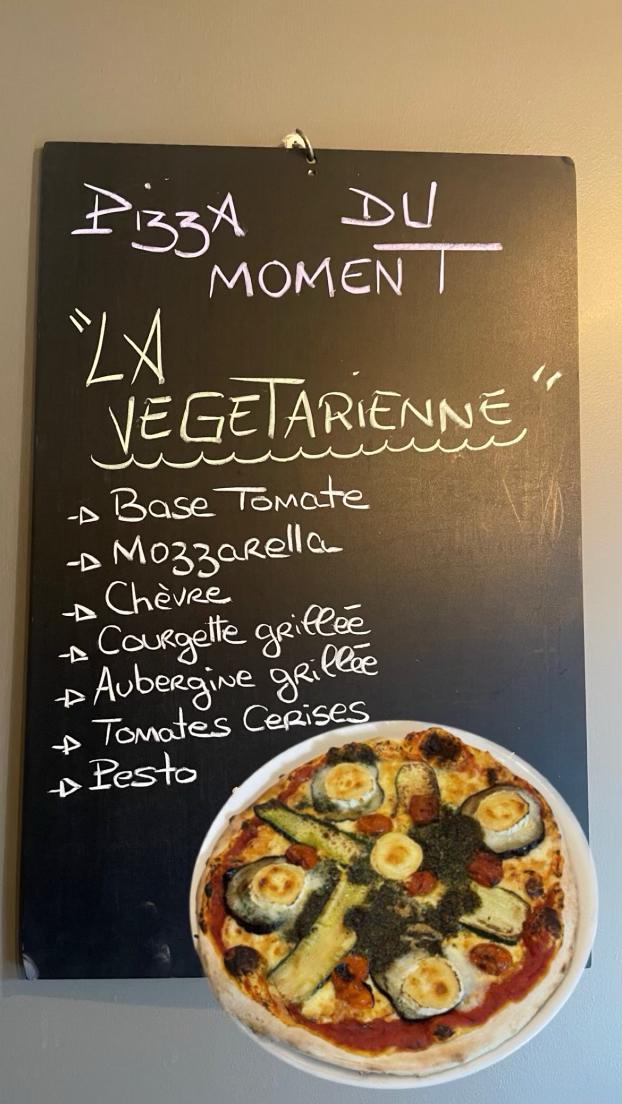 Pizza DU
MOMENT
"LA
VEGETARIENNE"
Base Tomate
Mozzarella
Chèvre
Courgette grillée
Aubergine grillée
Tomates Cerises
Pesto